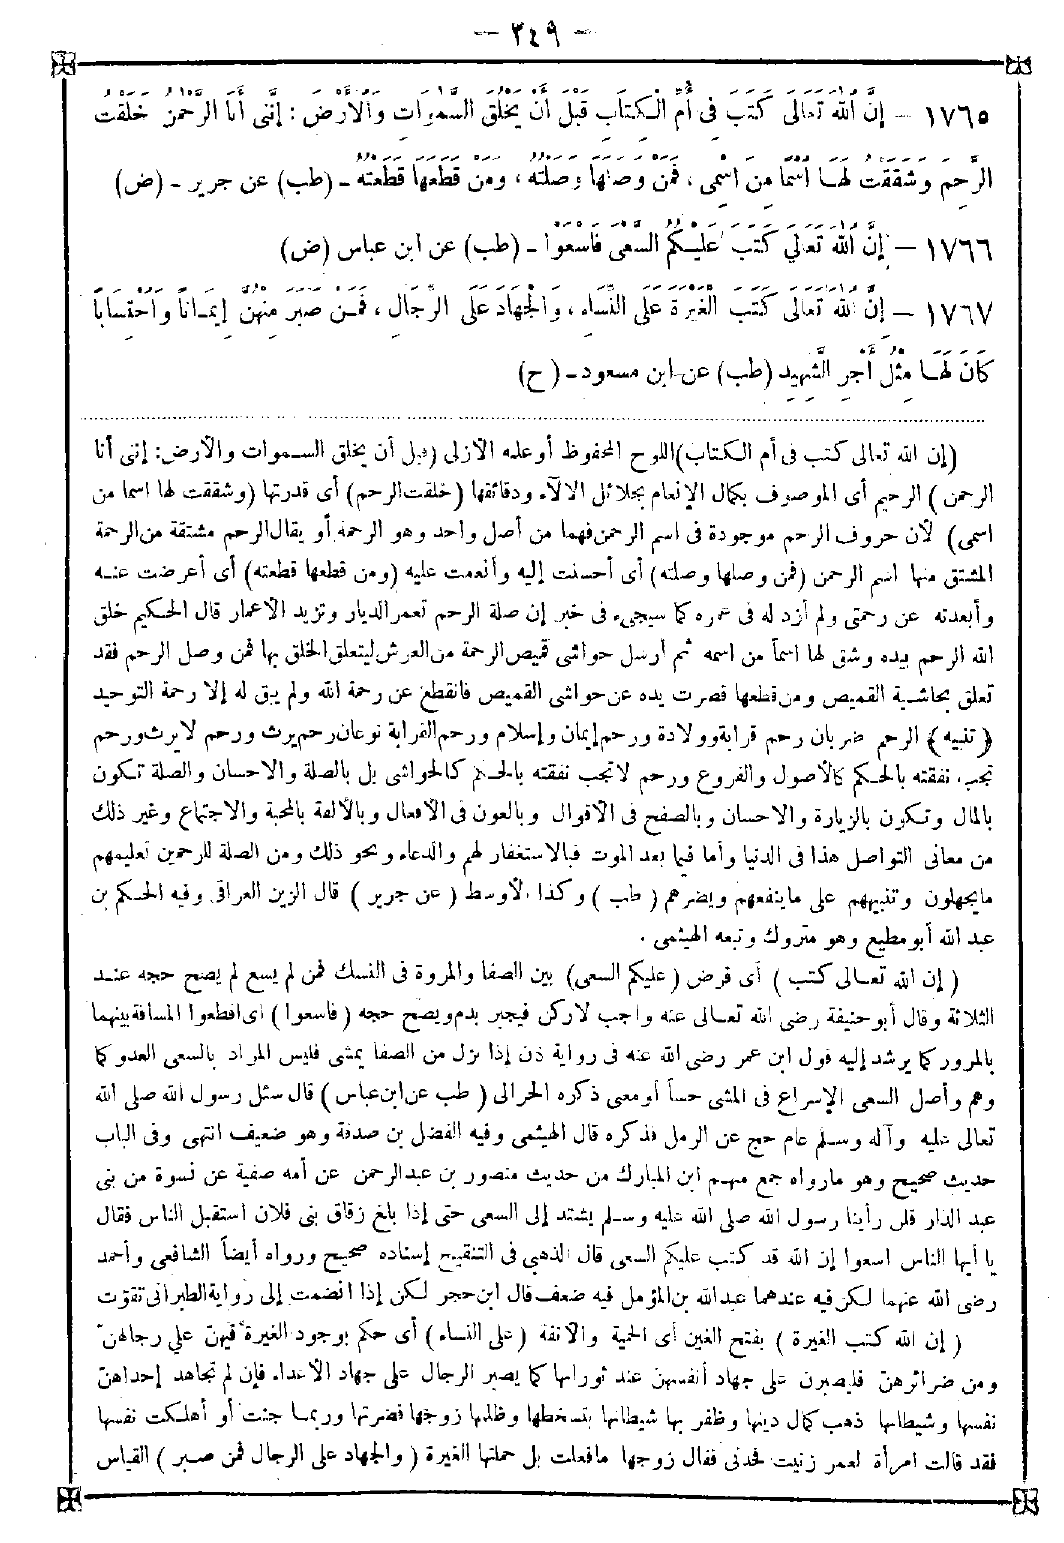 — ٢٤٩ —
١٧٦٥ — إِنَّ اللهَ تَعَالَى كَتَبَ فِى أُمِّ الْكِتَابِ قَبْلَ أَنْ يَخْلُقَ السَّمٰوَاتِ وَالْأَرْضَ : إِنَّنِى أَنَا الرَّحْمٰنُ خَلَقْتُ
الرَّحِمَ وَشَقَقْتُ لَهَا اسْمًا مِنَ اسْمِى ، فَمَنْ وَصَلَهَا وَصَلْتُهُ ، وَمَنْ قَطَعَهَا قَطَعْتُهُ - (طب) عن جرير - (ض)
١٧٦٦ — إِنَّ اللهَ تَعَالَى كَتَبَ عَلَيْكُمُ السَّعْىَ فَاسْعَوْا - (طب) عن ابن عباس (ض)
١٧٦٧ — إِنَّ اللهَ تَعَالَى كَتَبَ الْغَيْرَةَ عَلَى النِّسَاءِ ، وَالْجِهَادَ عَلَى الرِّجَالِ ، فَمَنْ صَبَرَ مِنْهُنَّ إِيمَانًا وَاحْتِسَابًا
كَانَ لَهَا مِثْلُ أَجْرِ الشَّهِيدِ (طب) عن ابن مسعود - (ح)
(إن الله تعالى كتب فى أم الكتاب) اللوح المحفوظ أو علمه الأزلى (قبل أن يخلق السموات والأرض: إننى أنا
الرحمن) الرحيم أى الموصوف بكمال الإنعام بجلائل الآلاء ودقائقها (خلقت الرحم) أى قدرتها (وشققت لها اسما من
اسمى) لأن حروف الرحم موجودة فى اسم الرحمن فهما من أصل واحد وهو الرحمة أو يقال الرحم مشتقة من الرحمة
المشتق منها اسم الرحمن (فمن وصلها وصلته) أى أحسنت إليه وأنعمت عليه (ومن قطعها قطعته) أى أعرضت عنه
وأبعدته عن رحمتى ولم أزد له فى عمره كما سيجىء فى خبر إن صلة الرحم تعمر الديار وتزيد الأعمار قال الحكيم خلق
الله الرحم بيده وشق لها اسماً من اسمه ثم أرسل حواشى قميص الرحمة من العرش ليتعلق الخلق بها فمن وصل الرحم فقد
تعلق بحاشية القميص ومن قطعها قصرت يده عن حواشى القميص فانقطع عن رحمة الله ولم يبق له إلا رحمة التوحيد
﴿ تنبيه ﴾ الرحم ضربان رحم قرابة وولادة ورحم إيمان وإسلام ورحم القرابة نوعان رحم يرث ورحم لا يرث ورحم
تجب نفقته بالحكم كالأصول والفروع ورحم لا تجب نفقته بالحكم كالحواشى بل بالصلة والاحسان والصلة تكون
بالمال وتكون بالزيارة والاحسان وبالصفح فى الأقوال وبالعون فى الأفعال وبالألفة بالمحبة والاجتماع وغير ذلك
من معانى التواصل هذا فى الدنيا وأما فيما بعد الموت فبالاستغفار لهم والدعاء ونحو ذلك ومن الصلة للرحمين تعليمهم
ما يجهلون وتنبيههم على ما ينفعهم ويضرهم ( طب ) وكذا الأوسط ( عن جرير ) قال الزين العراقى وفيه الحكم بن
عبد الله أبو مطيع وهو متروك وتبعه الهيثمى .
( إن الله تعالى كتب ) أى فرض ( عليكم السعى) بين الصفا والمروة فى النسك فمن لم يسع لم يصح حجه عند
الثلاثة وقال أبو حنيفة رضى الله تعالى عنه واجب لا ركن فيجبر بدم ويصح حجه ( فاسعوا ) أى اقطعوا المسافة بينهما
بالمرور كما يرشد إليه قول ابن عمر رضى الله عنه فى رواية ذن إذا نزل من الصفا يمشى فليس المراد بالسعى العدو كما
وهم وأصل السعى الإسراع فى المشى حساً أو معنى ذكره الحرالى ( طب عن ابن عباس ) قال سئل رسول الله صلى الله
تعالى عليه وآله وسلم عام حج عن الرمل فذكره قال الهيثمى وفيه الفضل بن صدقة وهو ضعيف انتهى وفى الباب
حديث صحيح وهو مارواه جمع منهم ابن المبارك من حديث منصور بن عبد الرحمن عن أمه صفية عن نسوة من بنى
عبد الدار قلن رأينا رسول الله صلى الله عليه وسلم يشتد إلى السعى حتى إذا بلغ زقاق بنى فلان استقبل الناس فقال
يا أيها الناس اسعوا إن الله قد كتب عليكم السعى قال الذهبى فى التنقيح إسناده صحيح ورواه أيضاً الشافعى وأحمد
رضى الله عنهما لكن فيه عندهما عبد الله بن المؤمل فيه ضعف قال ابن حجر لكن إذا انضمت إلى رواية الطبرانى تقوّت
( إن الله كتب الغيرة ) بفتح الغين أى الحمية والأنفة ( على النساء ) أى حكم بوجود الغيرة فيهنّ على رجالهنّ
ومن ضرائرهنّ فليصبرن على جهاد أنفسهن عند ثورانها كما يصبر الرجال على جهاد الأعداء فإن لم تجاهد إحداهنّ
نفسها وشيطانها ذهب كمال دينها وظفر بها شيطانها بتسخطها وظلمها زوجها فضرتها وربما جنت أو أهلكت نفسها
فقد قالت امرأة لعمر زنيت فحدنى فقال زوجها مافعلت بل حملتها الغيرة ( والجهاد على الرجال فمن صبر ) القياس